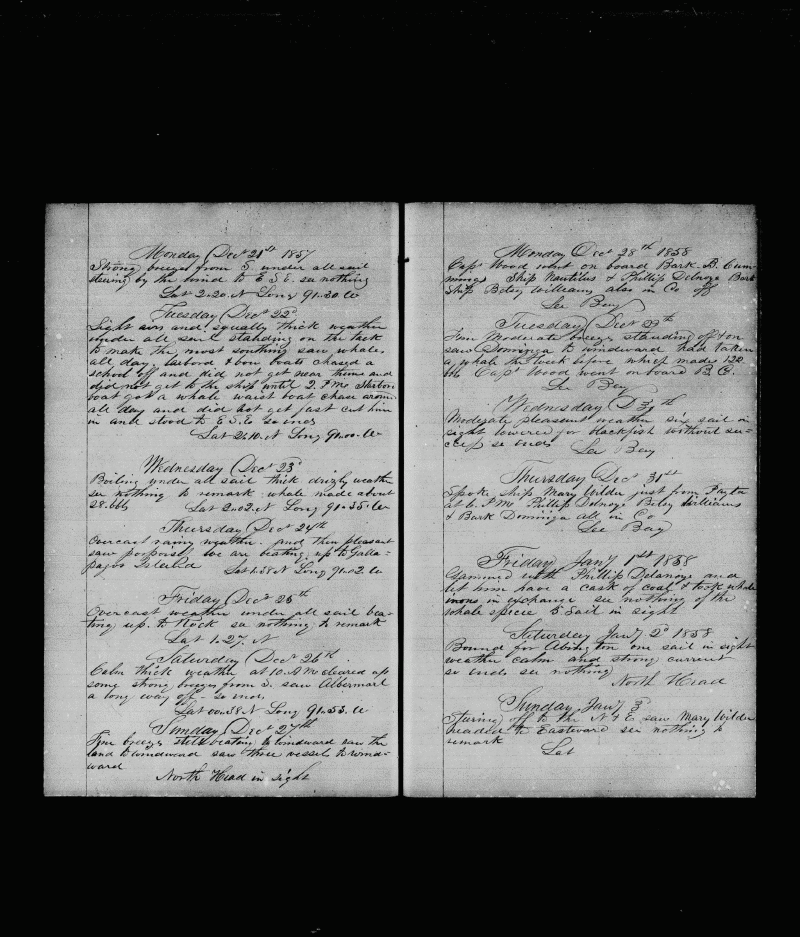 Monday Dec 21st 1857
Strong breeze from S. under all sail
stearing by the wind to E S E. se nothing
Lat 2-20. N Long 91-30 W
Tuesday Dec 22d
Light airs and squally thick weather
under all sail standing on the tack
to make the most southing saw whales
all day larbord & bow boats chased a
school off and did not get near them and
did not get to the ship until 2. P Me Starbor
boat got a whale waist boat chase arom
all day and did not get fast cut him
in and stood to E S. E. so ends
Lat 2.10. N Long 91.00. W
Wednesday Dec 23d
Boiling under all sail thick drizly weather
se nothing to remark whale made about
28. bbls Lat 2.02. N Long 91-35. W
Thursday Dec 24th
Overcast rainy weather. and then pleasant
saw porpoises we are beating up to Galla-
pagos Islands Lat 1.38 N Long 91.02. W
Friday Dec 25th
Overcast weather under all sail bea-
ting up. to Rock se nothing to remark
Lat 1.27. N
Saturday Dec 26th
Calm thick weather at 10. A Me cleared up
some strong breezes from S. saw Albermarl
a long way off. so ends
Lat 00.58 N Long 91.53. W
Sunday Dec 27th
Fine breezes still beating to windward saw the
land to windward saw three vessels to wind-
ward
North Head in sight
Monday Dec 28th 1858
Capt Wood whent on board Bark. B. Cum-
mings Ship Nautilus & Phillip Delnoye Bark
Ship Betsy Williams also in Co off
Lee Bay
Tuesday Dec 29th
Fine Moderate breezes standing off & on
saw Dominga to windward had taken
a whale the week before which made 120
bbls Capt Wood went onboard B. C.
Lee Bay
Wednesday D 30th
Moderate pleasant weather six sail in
sight lowered for blackfish without suc-
cess so ends Lee Bay
Thursday Dec 31st
Spoke ship Mary Wilder just from Payta
at 6. P Me Phillip Delnoye Betsy Williams
& Bark Dominga all in Co
Lee Bay
Friday Jany 1st 1858
Gammed with Phillip Delanoye and
let him have a cask of coal & took whale
irons in exchange see nothing of the
whale speciee 5 Sail in sight
Saturday Jany 2d 1858
Bound for Abington one sail in sight
weather calm and strong current
so ends se nothing
North Head
Sunday Jany 3d
Stearing off to the N & E saw Mary Wilder
headed to Eastward see nothing to
remark
Lat